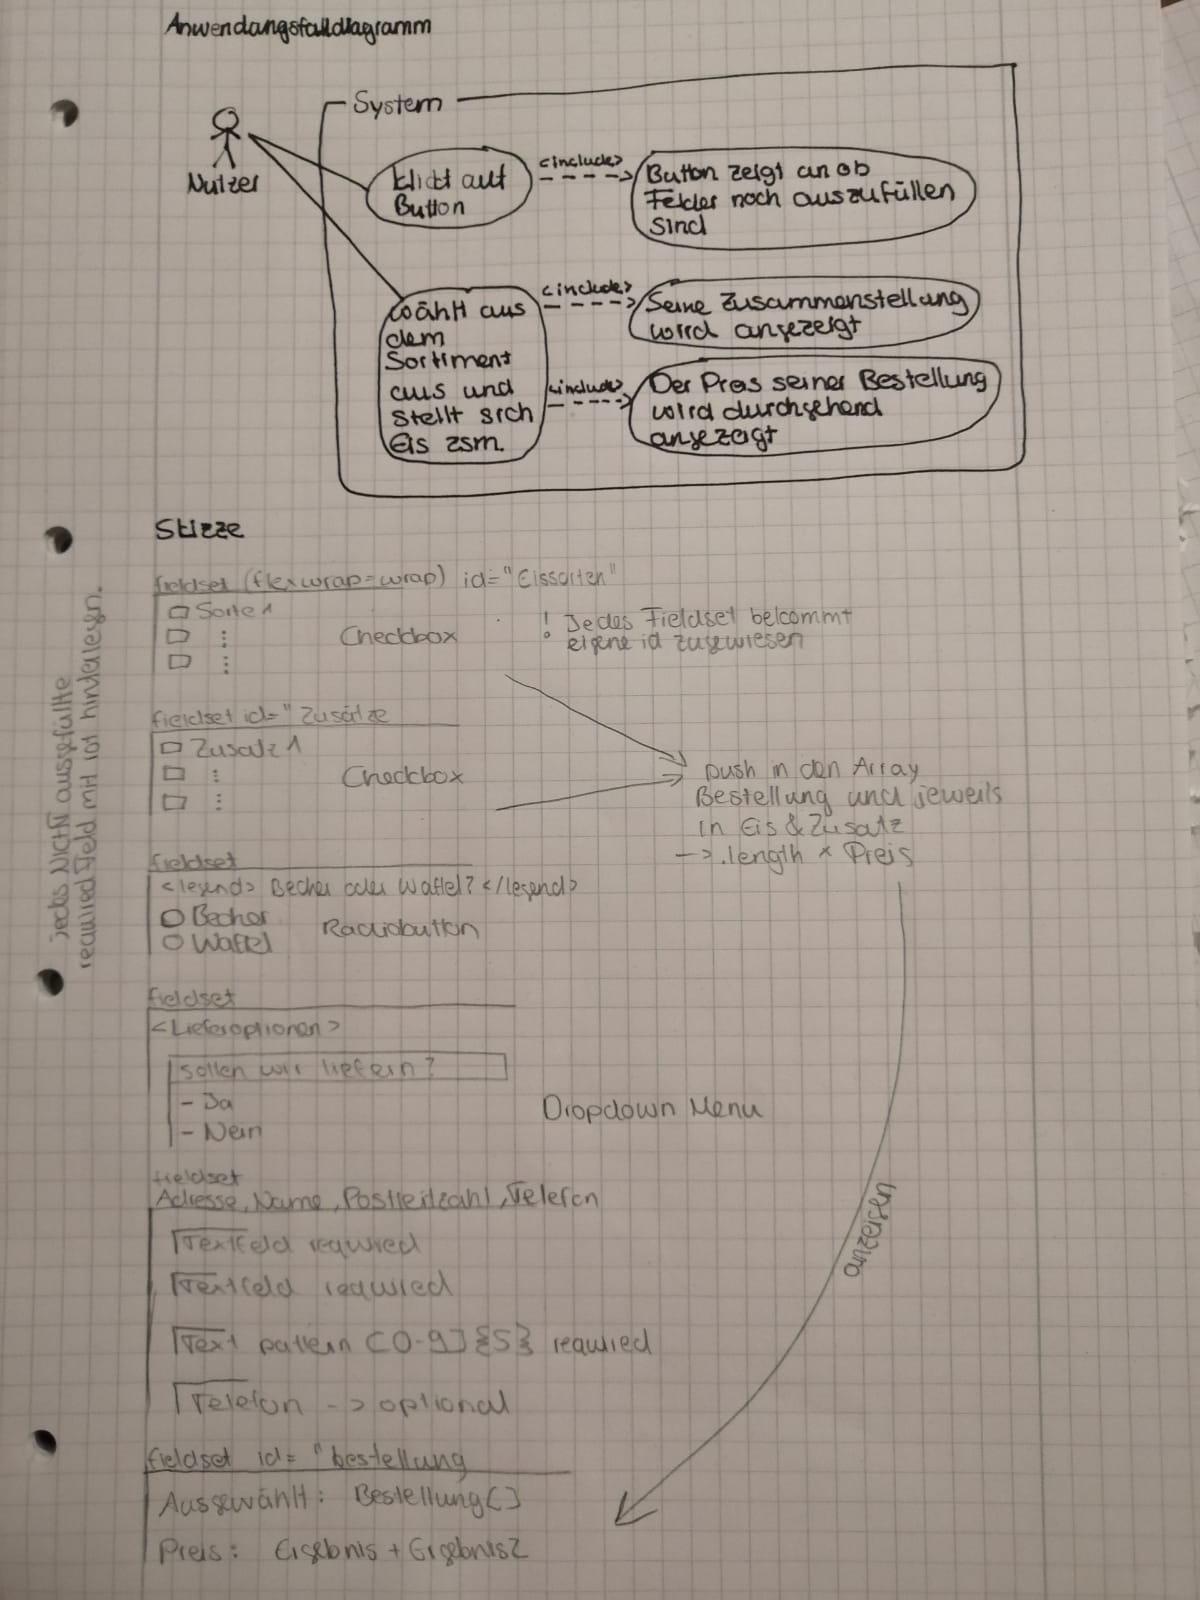 Anwendungsfalldiagramm
System
Nutzer
klickt auf
Button
<include>
Button zeigt an ob
Felder noch auszufüllen
sind
wählt aus
dem
Sortiment
aus und
stellt sich
Eis zsm.
<include>
Seine Zusammenstellung
wird angezeigt
<include>
Der Preis seiner Bestellung
wird durchgehend
angezeigt
Skizze
fieldset (flexwrap=wrap) id="Eissorten"
Sorte 1
⋮
⋮
Checkbox
! Jedes Fieldset bekommt
eigene id zugewiesen
fieldset id="Zusätze
Zusatz 1
⋮
⋮
Checkbox
push in den Array
Bestellung und jeweils
in Eis & Zusatz
-> .length * Preis
fieldset
<legend> Becher oder Waffel? </legend>
Becher
Waffel
Radiobutton
fieldset
<Lieferoptionen>
Sollen wir liefern?
- Ja
- Nein
Dropdown Menu
fieldset
Adresse, Name, Postleitzahl, Telefon
Textfeld required
Textfeld required
Text pattern [0-9]{5} required
Telefon -> optional
anzeigen
fieldset id= "bestellung
Ausgewählt: Bestellung[]
Preis: Ergebnis + Ergebnis2
jedes NICHT ausgefüllte
required Field mit rot hinterlegen.